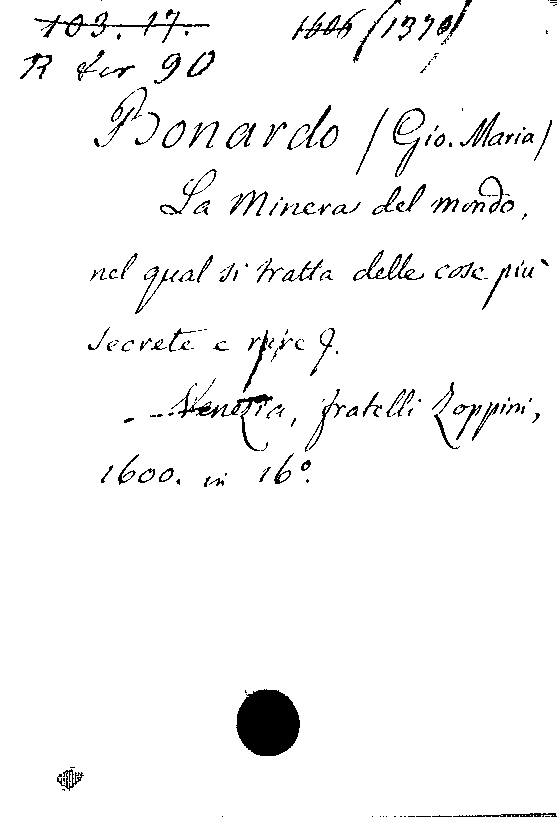 103. 17. 1606 /1370/
R ter 90
Bonardo / Gio. Maria/
La Minera del mondo,
nel qual si tratta delle cose più
secrete e rare
Venezia, fratelli Zoppini,
1600. in 16º.